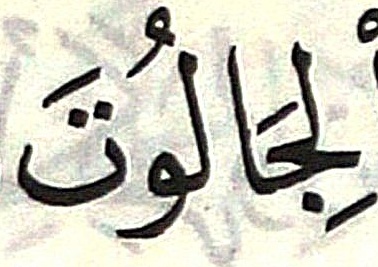 لِجَالُوتَ